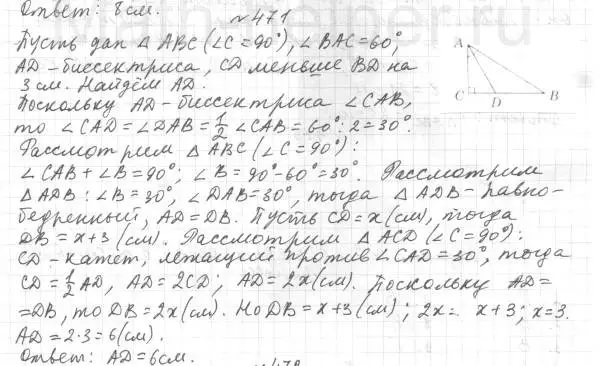 Ответ: 8 см.
№471
Пусть дан △ ABC (∠C = 90°), ∠BAC = 60°,
AD - биссектриса, CD меньше BD на
3 см. Найдём AD.
Поскольку AD - биссектриса ∠CAB,
то ∠CAD = ∠DAB = 1/2 ∠CAB = 60°: 2 = 30°.
Рассмотрим △ ABC (∠C = 90°):
∠CAB + ∠B = 90°; ∠B = 90° - 60° = 30°. Рассмотрим
△ ADB: ∠B = 30°, ∠DAB = 30°, тогда △ ADB - равно-
бедренный, AD = DB. Пусть CD = x (см), тогда
DB = x + 3 (см). Рассмотрим △ ACD (∠C = 90°):
CD - катет, лежащий против ∠CAD = 30°, тогда
CD = 1/2 AD, AD = 2CD; AD = 2x (см). Поскольку AD =
= DB, то DB = 2x (см). Но DB = x + 3 (см); 2x = x + 3; x = 3.
AD = 2·3 = 6 (см).
Ответ: AD = 6 см.
A
C D B